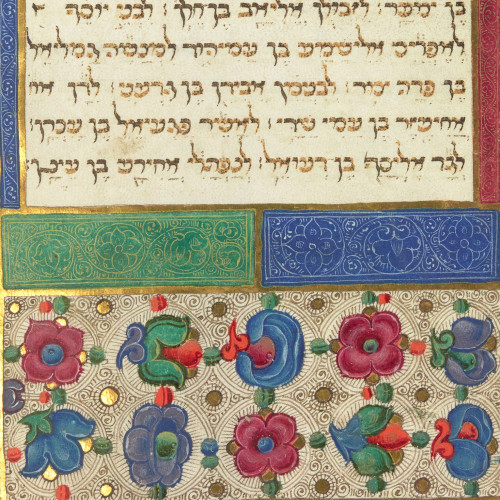 בן צוער: לזבולן אליאב בן חלן: לבני יוסף
לאפרים אלישמע בן עמיהוד למנשה גמליאל
בן פדה צור: לבנימן אבידן בן גדעני: לדן
אחיעזר בן עמי שדי: לאשר פגעיאל בן עכרן:
לגד אליסף בן דעואל: לנפתלי אחירע בן עינן: